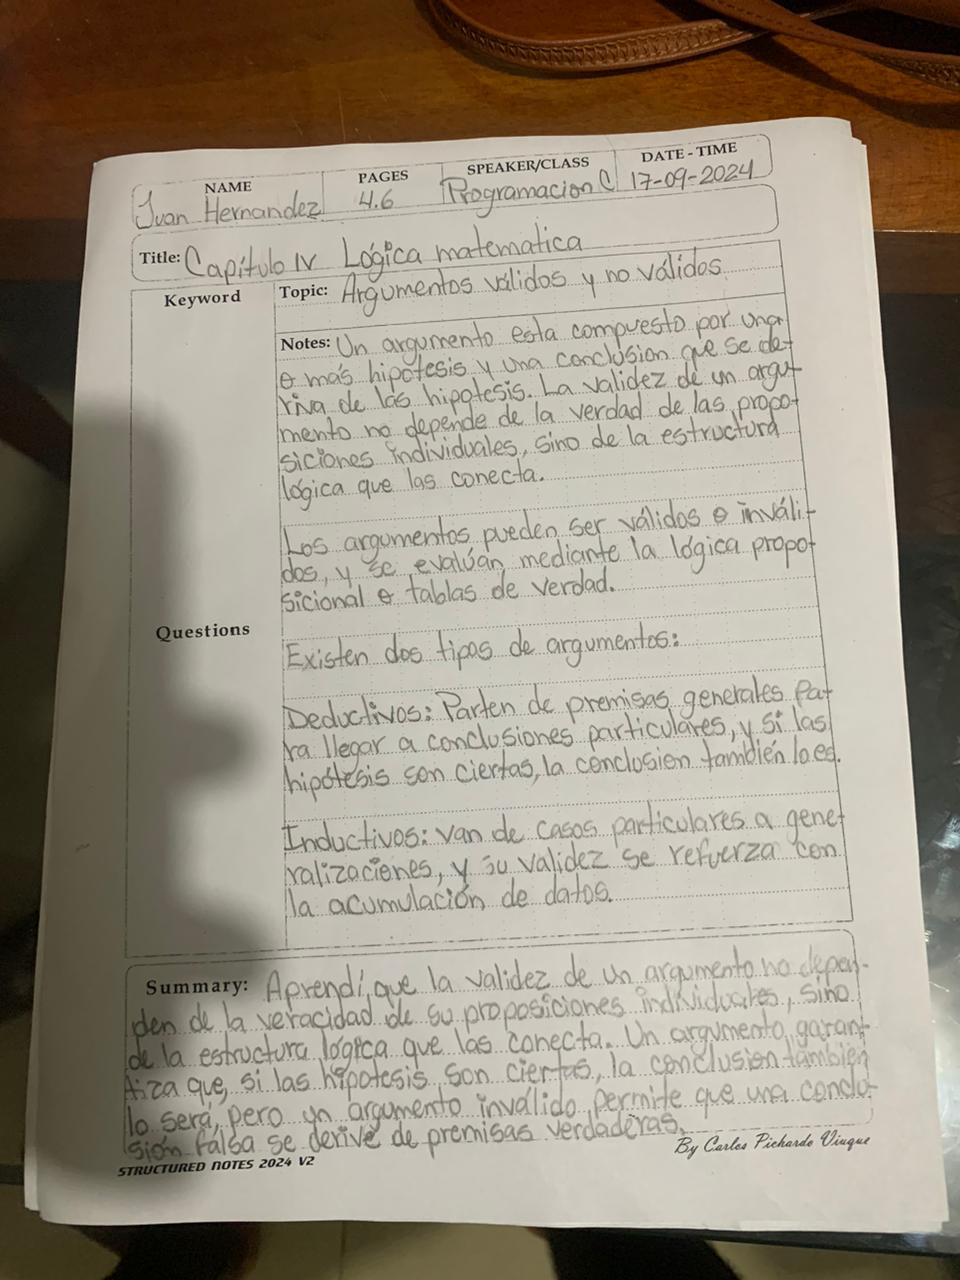 NAME PAGES SPEAKER/CLASS DATE - TIME
Juan Hernandez 4.6 Programacion C 17-09-2024
Title: Capítulo IV Lógica matematica
Keyword
Topic: Argumentos válidos y no válidos.
Notes: Un argumento esta compuesto por una
o más hipótesis y una conclusion que se de-
riva de las hipotesis. La validez de un argu-
mento no depende de la verdad de las propo-
siciones individuales, sino de la estructura
lógica que las conecta.
Los argumentos pueden ser válidos o inváli-
dos, y se evalúan mediante la lógica propo-
sicional o tablas de verdad.
Questions
Existen dos tipos de argumentos:
Deductivos: Parten de premisas generales Pa-
ra llegar a conclusiones particulares, y si las
hipótesis son ciertas, la conclusion también lo es.
Inductivos: van de casos particulares a gene-
ralizaciones, y su validez se refuerza con
la acumulación de datos.
Summary: Aprendí que la validez de un argumento no depen-
den de la veracidad de su proposiciones individuales, sino
de la estructura lógica que las conecta. Un argumento garant-
tiza que, si las hipotesis son ciertas, la conclusion también
lo será, pero un argumento inválido permite que una conclu-
sión falsa se derive de premisas verdaderas.
By Carlos Pichardo Viuque
STRUCTURED NOTES 2024 V2